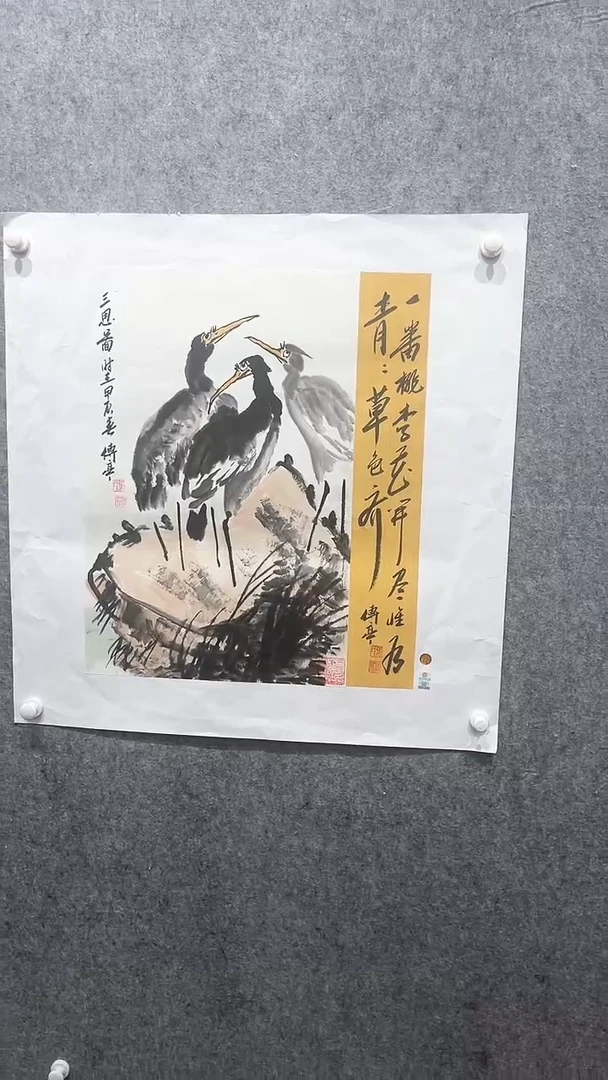 一番桃李花开尽惟有
青:草色齐
傅亭
三思图 时在甲辰春 傅亭